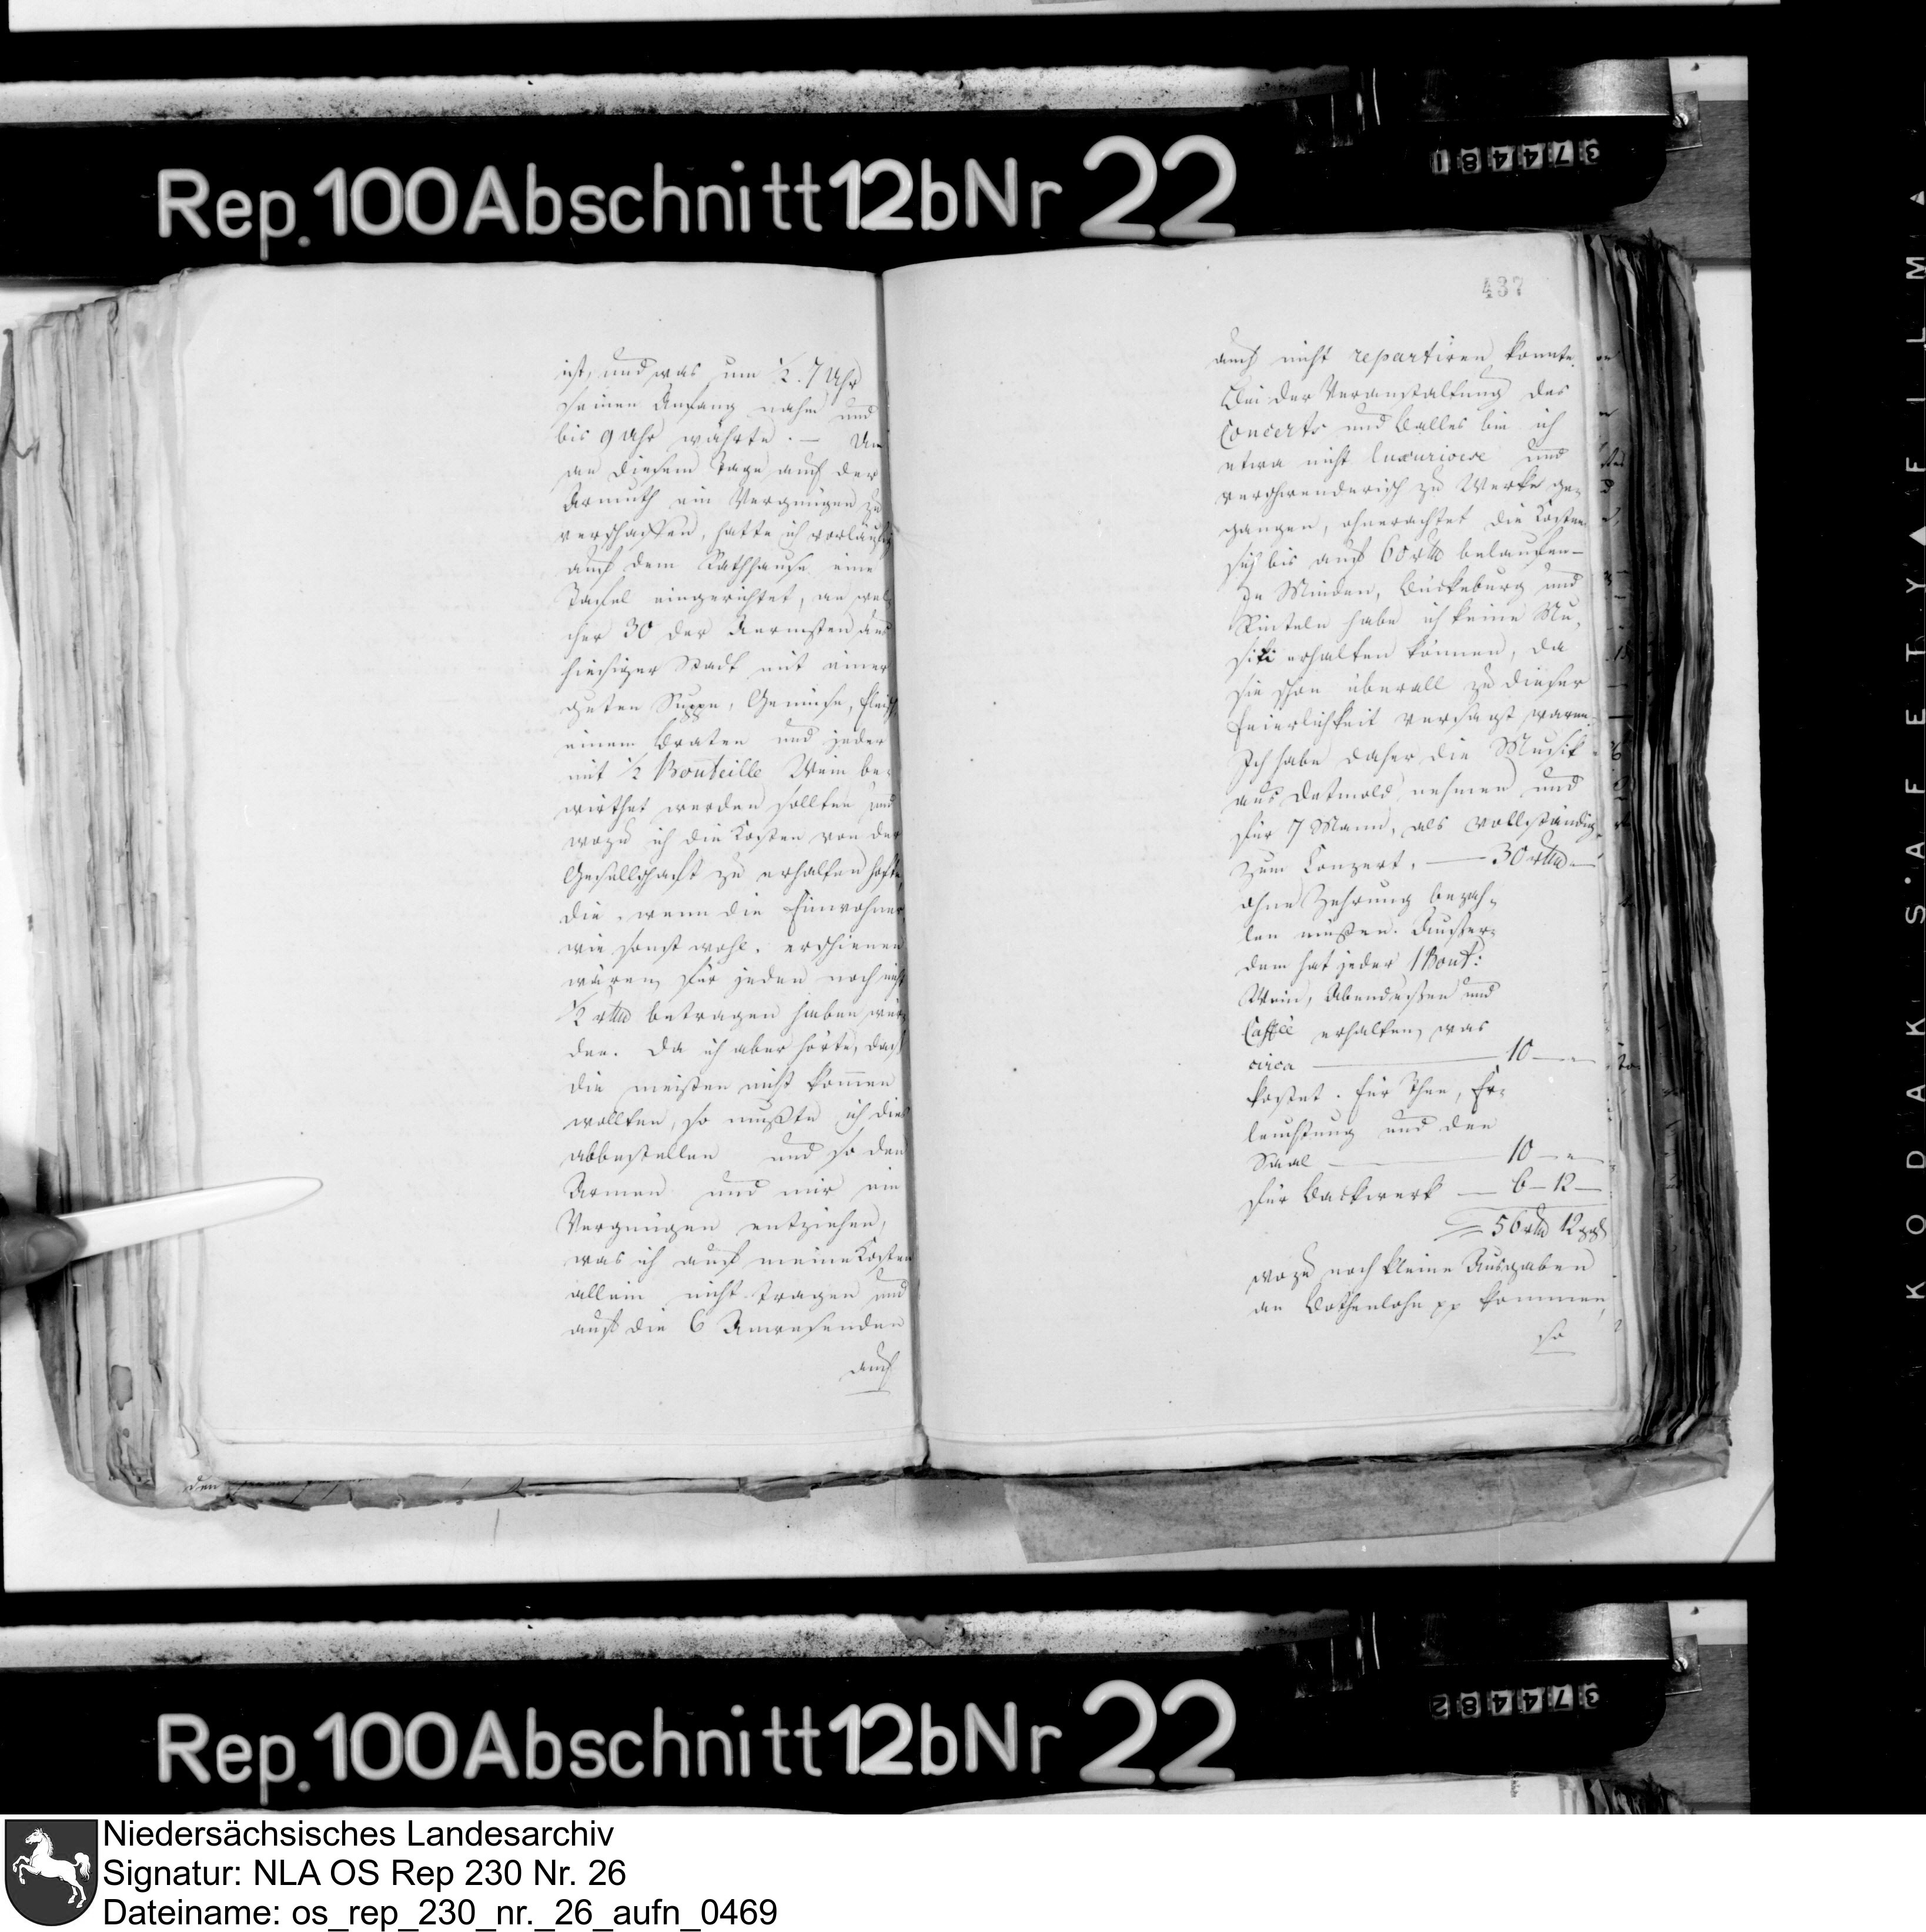 3 7 4 4 8 1
Rep. 100 Abschnitt 12b Nr 22
ist, und was um 1/2. 7 Uhr
seinen Anfang nahm und
bis 9 Uhr währte. — Um
an diesem Tage auch der
Armuth ein Vergnügen zu
verschaffen, hatte ich vorläufig
auf dem Rathhause eine
Tafel eingerichtet, an wel-
cher 30 der Aermsten aus
hiesiger Stadt mit einer
guten Suppe, Gemüse, Fleisch,
einem Braten und jeder
mit 1/2 Bouteille Wein be-
wirthet werden sollten und
wozu ich die Kosten von der
Gesellschaft zu erhalten hofte,
die, wenn die Einwohner,
wie sonst wohl, erschienen
wären, für jeden noch nicht
1/2 rthlr betragen haben wür-
den. Da ich aber hörte, daß
die meisten nicht kommen
wollten, so mußte ich dies
abbestellen und so den
Armen und mir ein
Vergnügen entziehen,
was ich auf meine Kosten
allein nicht tragen und
auf die 6 Anwesenden
auch
437
auch nicht repartiren konnte.
Bei der Veranstaltung des
Concerts und Balles bin ich
etwa nicht luxuriose und
verschwenderisch zu Werke ge-
gangen, ohnerachtet die Kosten
sich bis auf 60 rthlr belaufen —
In Minden, Bückeburg und
Rinteln habe ich keine Mu-
sici erhalten können, da
sie schon überall zu dieser
Feierlichkeit versagt waren.
Ich habe daher die Musik
aus Detmold nehmen und
für 7 Mann, als vollständig
zum Conzert, — 30 rthlr —
ohne Zehrung bezah-
len müßen. Außer-
dem hat jeder 1 Bout:
Wein, Abendeßen und
Caffée erhalten, was
circa — 10 — "
kostet. Für Thee, Er-
leuchtung und den
Saal — 10 — "
für Backwerk — 6 — 12 —
= 56 rthlr 12 ggr
wozu noch kleine Ausgaben
an Bothenlohn pp kommen,
so
den
KODAK · SAFETY ▲ FILM ▲
3 7 4 4 8 2
Rep. 100 Abschnitt 12b Nr 22
Niedersächsisches Landesarchiv
Signatur: NLA OS Rep 230 Nr. 26
Dateiname: os_rep_230_nr._26_aufn_0469